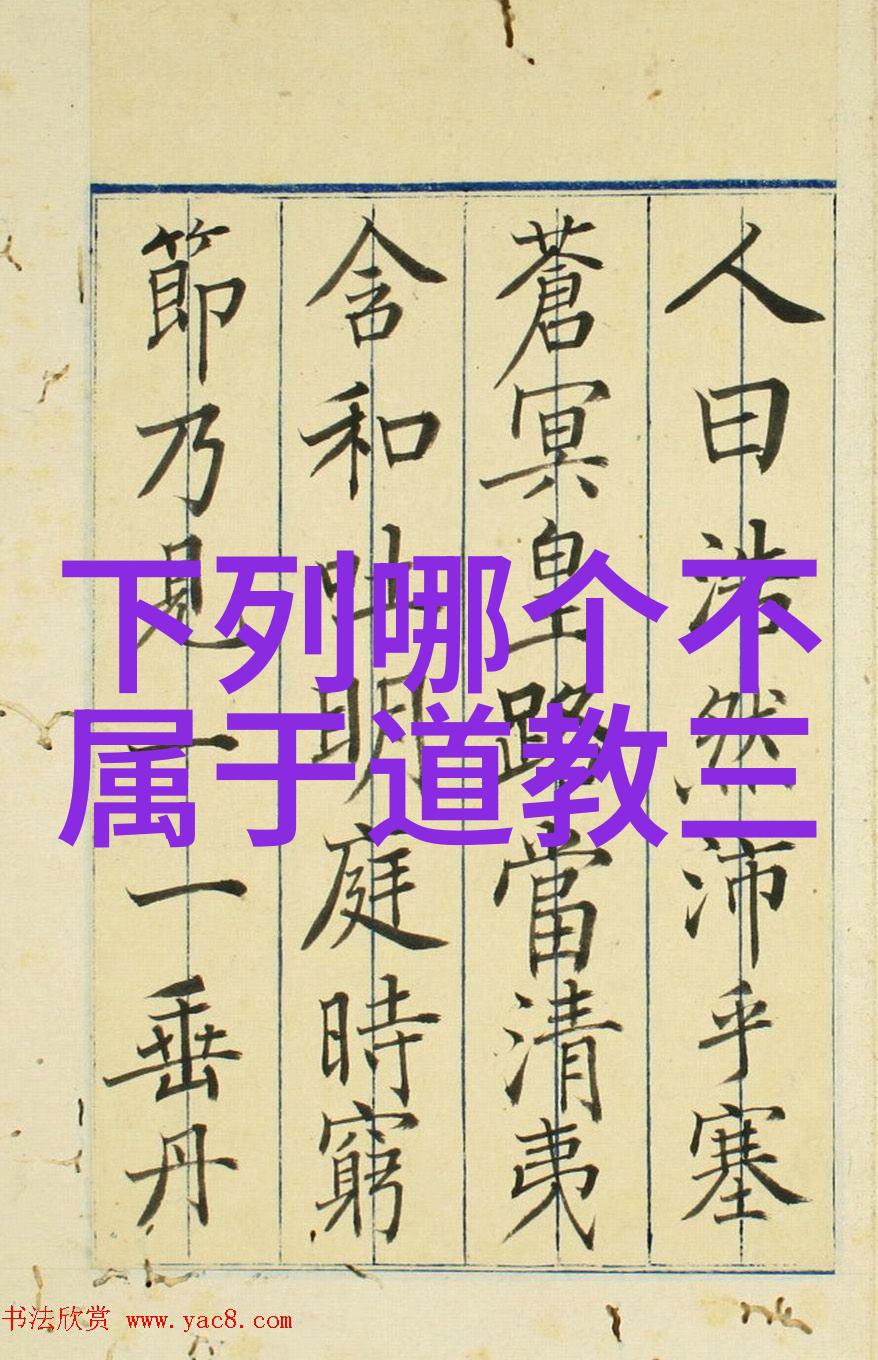 人曰浩然沛乎塞
蒼冥皇路當清夷
含和吐明庭時窮
節乃見一一垂丹
下列哪个不
属于道教三
书法欣赏 www.yac8.com